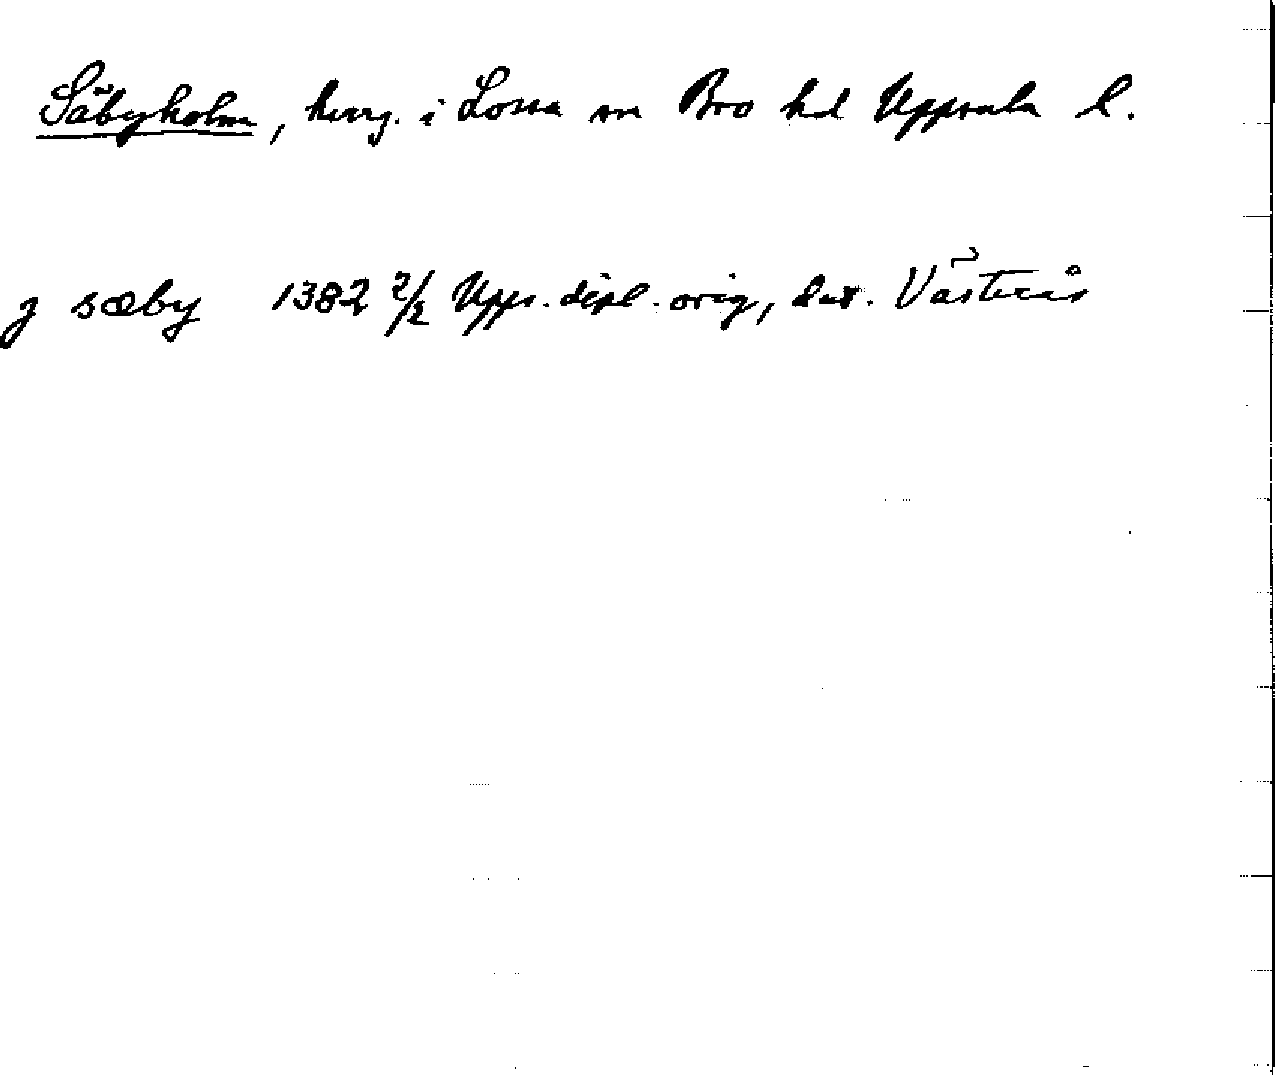 Säbyholm, herrg. i Lossa sn Bro hd Uppsala l.
j sæby 1382 2/2 Upps. dipl. orig, dat. Västerås